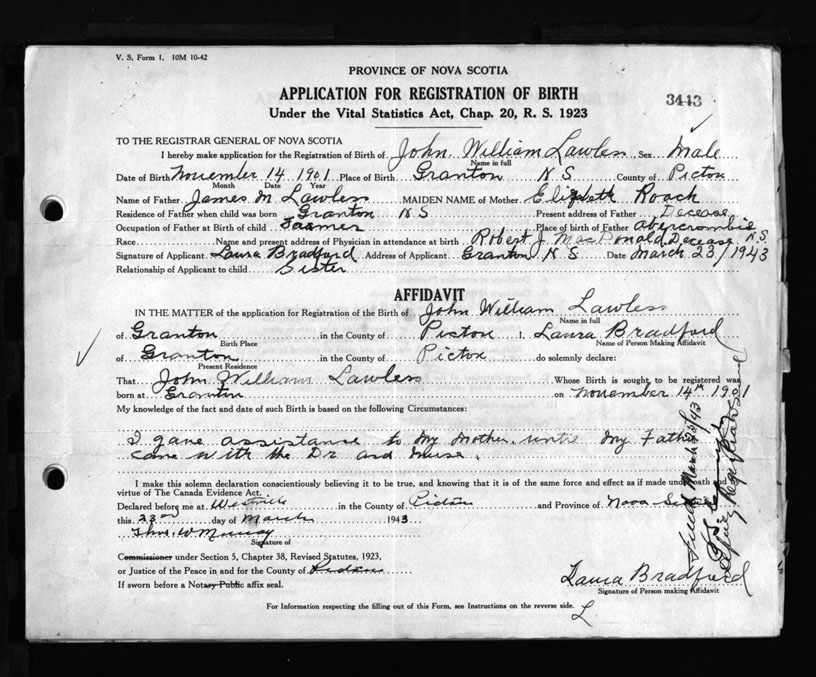 V. S. Form 1. 10M 10-42
PROVINCE OF NOVA SCOTIA
APPLICATION FOR REGISTRATION OF BIRTH
3443
Under the Vital Statistics Act, Chap. 20, R. S. 1923
TO THE REGISTRAR GENERAL OF NOVA SCOTIA
I hereby make application for the Registration of Birth of John William Lawless Sex Male
Name in full
Date of Birth November 14 1901 Place of Birth Granton N S County of Pictou
Month Date Year
Name of Father James M Lawless MAIDEN NAME of Mother Elizabeth Roach
Residence of Father when child was born Granton N S Present address of Father Decease
Occupation of Father at Birth of child Farmer Place of birth of Father Abercrombie N.S.
Race Name and present address of Physician in attendance at birth Robert J. MacDonald, Decease
Signature of Applicant Laura Bradford Address of Applicant Granton N S Date March 23/1943
Relationship of Applicant to child Sister
AFFIDAVIT
IN THE MATTER of the application for Registration of the Birth of John William Lawless
Name in full
of Granton in the County of Pictou I, Laura Bradford
Birth Place Name of Person Making Affidavit
of Granton in the County of Pictou do solemnly declare:
Present Residence
That John William Lawless Whose Birth is sought to be registered was
born at Granton on November 14th 1901
My knowledge of the fact and date of such Birth is based on the following Circumstances:
I gave assistance to My Mother. until My Father
came with the Dr and nurse.
I make this solemn declaration conscientiously believing it to be true, and knowing that it is of the same force and effect as if made under oath and by
virtue of The Canada Evidence Act.
Declared before me at Westville in the County of Pictou and Province of Nova Scotia
this 23rd day of March 1943
Signature of
Commissioner under Section 5, Chapter 38, Revised Statutes, 1923,
or Justice of the Peace in and for the County of Pictou
If sworn before a Notary Public affix seal.
Laura Bradford
Signature of Person making Affidavit
For Information respecting the filling out of this Form, see Instructions on the reverse side.